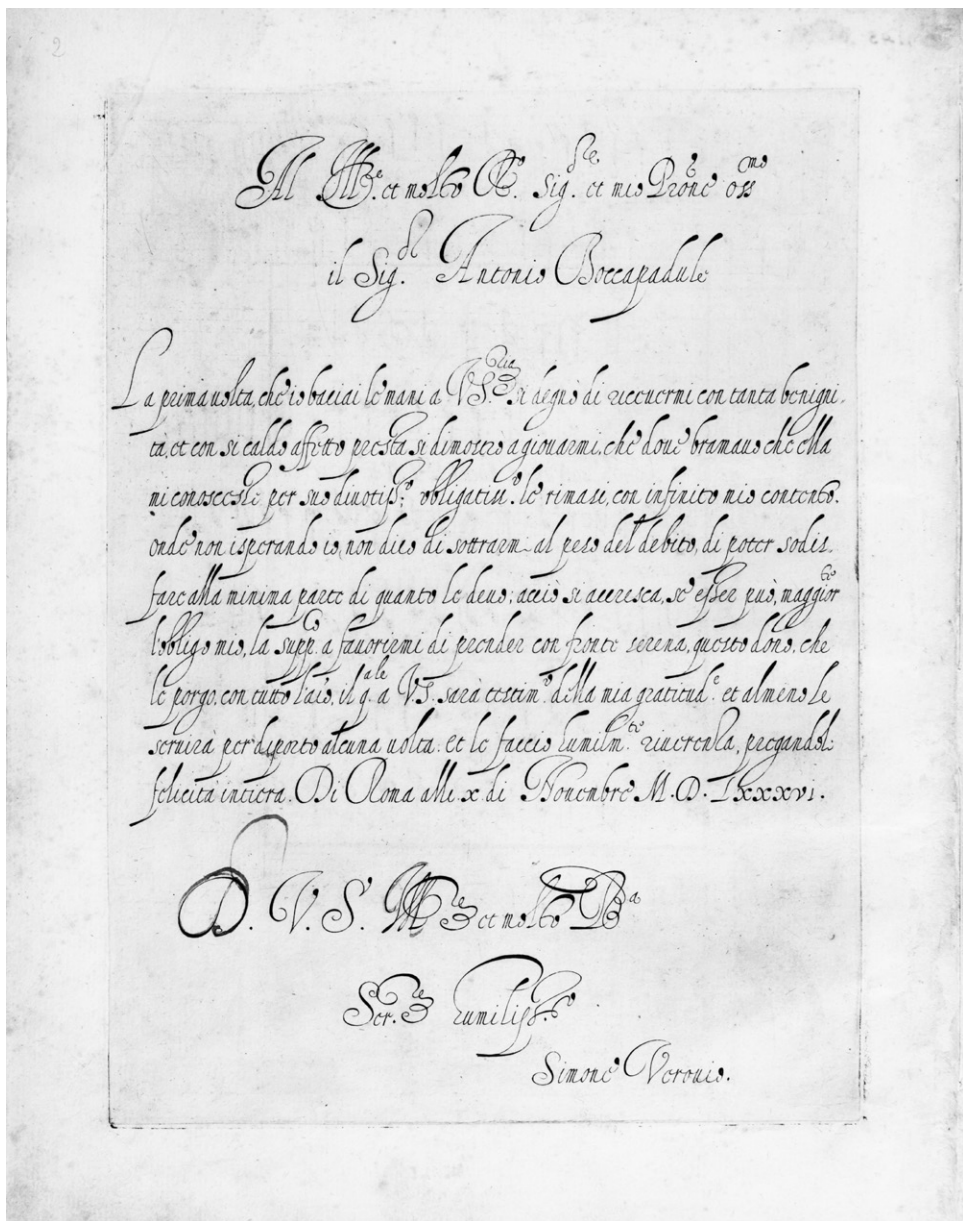 2
Al Ill.re et molto R.do Sig.re et mio Prone oss.mo
il Sig.re Antonio Boccapadule
La prima uolta, che io baciai le mani a VS. si degnò di riceuermi con tanta benigni-
tà, et con si caldo affetto presta si dimostrò a giouarmi, che doue bramauo che ella
mi conoscesse per suo diuotiss.o obligatiss.o le rimasi, con infinito mio contento.
onde non isperando io, non dico di sottrarmi al peso del debito, di poter sodis-
fare alla minima parte di quanto le deuo; acciò si accresca, se esser può, maggior
l'obligo mio, la supp.co a fauorirmi di prender con fronte serena, questo dono, che
le porgo, con tutto l'aio, il q.ale a VS. sarà testim.o della mia gratitud.e et almeno le
seruirà per diporto alcuna uolta. et le faccio humilm.te riuerenza, pregandole
felicità intiera. Di Roma alli x di Nouembre M.D.LXXXVI.
D. V. S. Ill.re et molto R.da
Ser.re humiliss.o
Simone Verouio.